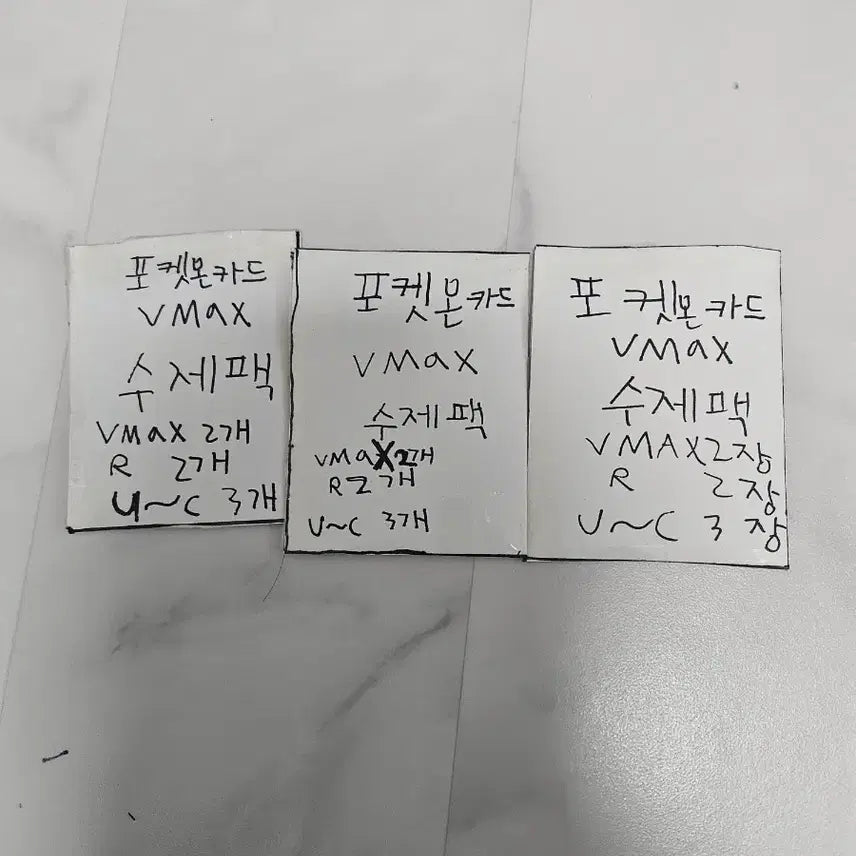 포켓몬카드
VMaX
수제팩
VMaX 2개
R 2개
U~C 3개
포켓몬카드
VMaX
수제팩
VMaX 2개
R 2개
U~C 3개
포켓몬카드
VMaX
수제팩
VMAX 2장
R 2장
U~C 3장